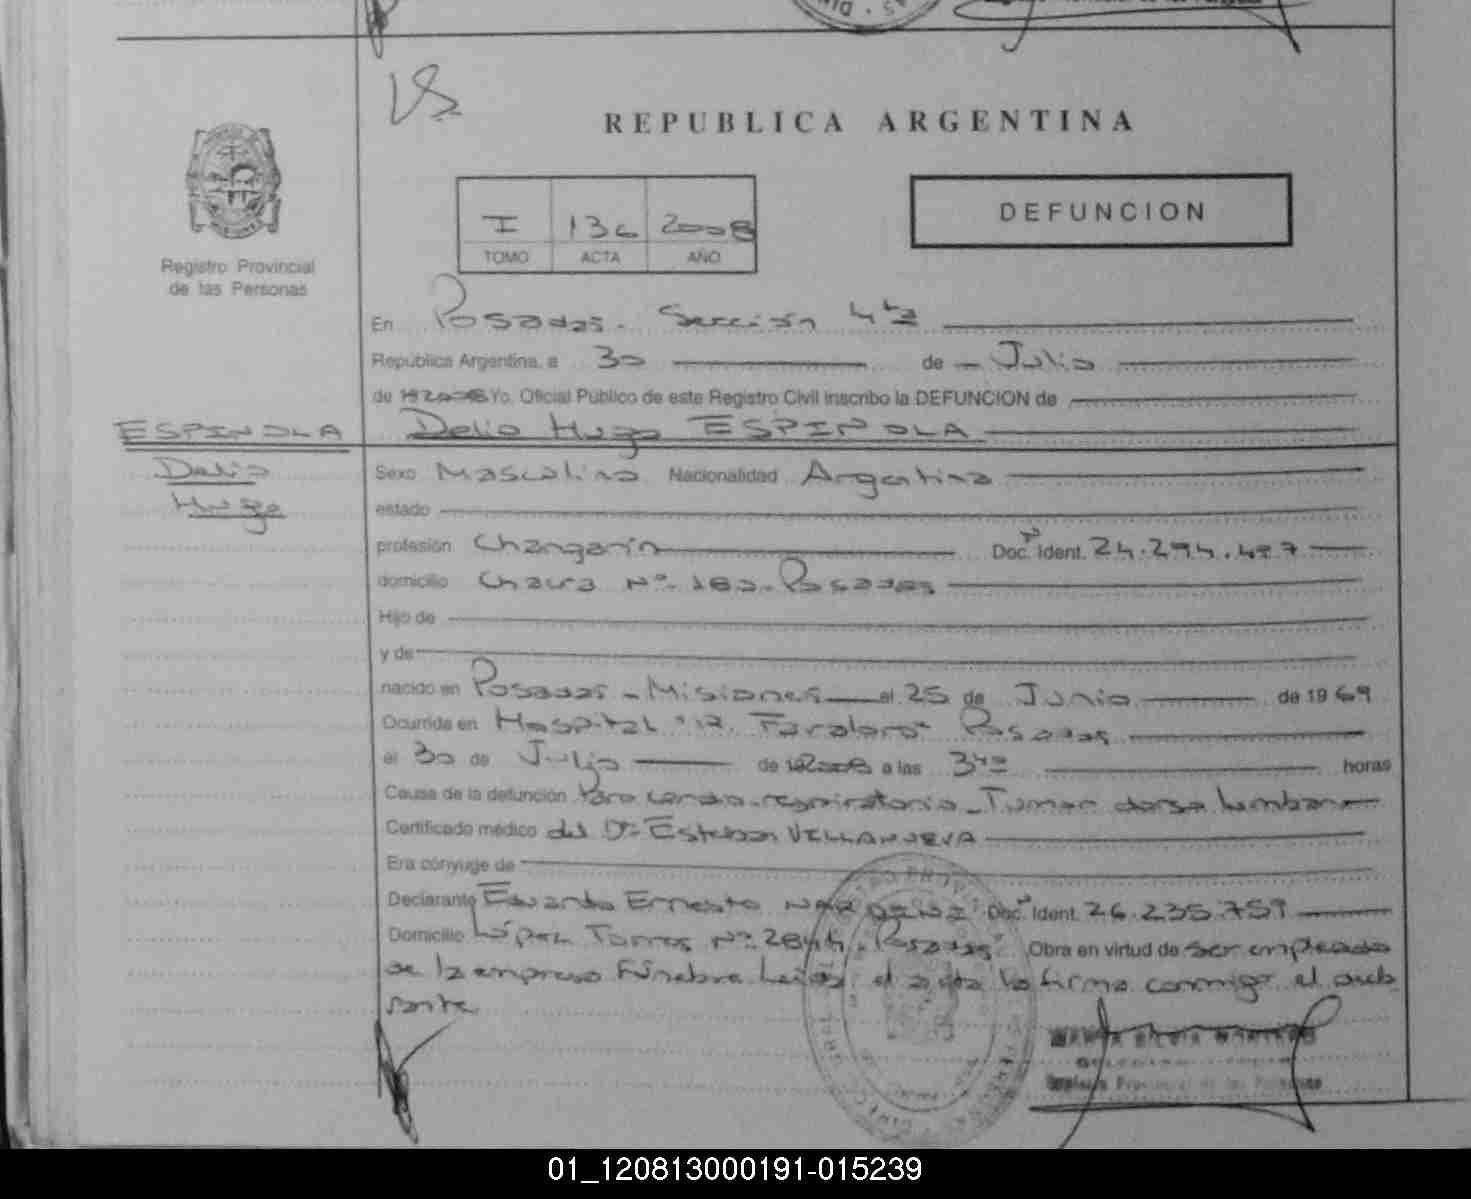 REPUBLICA ARGENTINA
I 136 2008
TOMO ACTA AÑO
DEFUNCION
Registro Provincial
de las Personas
En Posadas. Sección 4ta
República Argentina, a 30 de Julio
de 2008 Yo, Oficial Público de este Registro Civil inscribo la DEFUNCION de
ESPINDOLA
Delio
Hugo
Delio Hugo ESPINDOLA
Sexo Masculino Nacionalidad Argentina
estado
profesión Changarín Doc. Ident. 24.294.497
domicilio Nº 180. Posadas
Hijo de
y de
nacido en Posadas - Misiones el 25 de Junio de 1969
Ocurrida en Hospital Posadas
el 30 de Julio de 2008 a las horas
Causa de la defunción Paro cardio-respiratorio - Tumor dorso lumbar
Certificado médico del Dr Esteban VILLANUEVA
Era cónyuge de
Declarante Eduardo Ernesto Doc. Ident. 26.235.759
Domicilio López Torres Nº 2844. Posadas Obra en virtud de ser empleado
de la empresa Fúnebre el acta la firma conmigo el
01_120813000191-015239